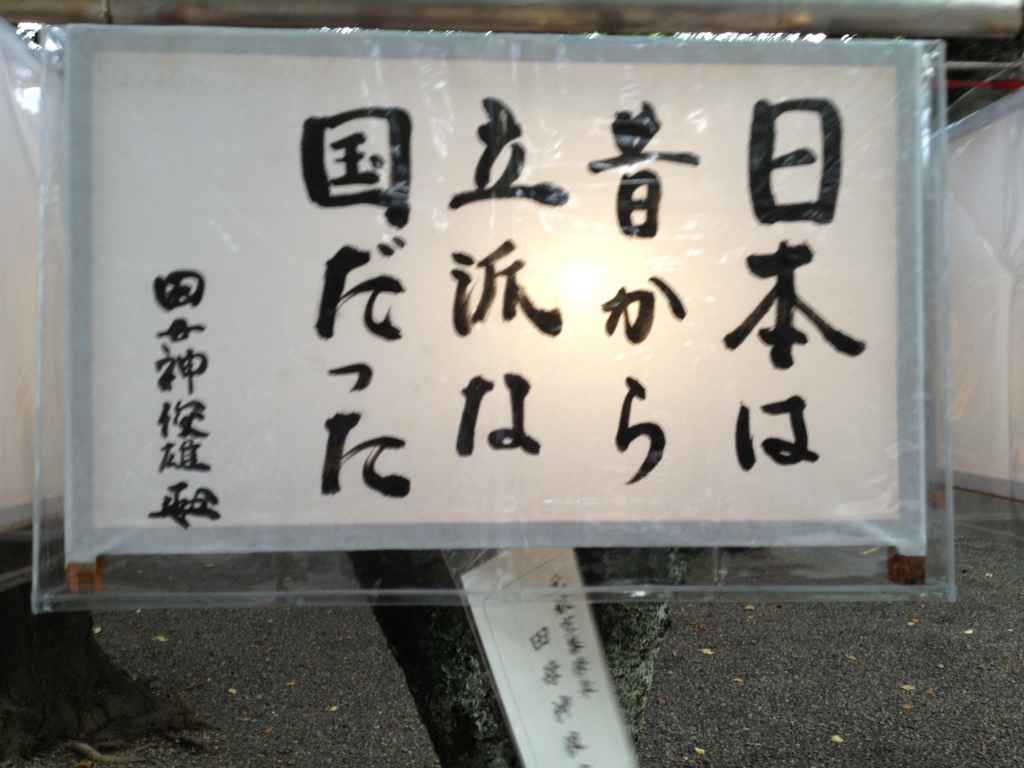 日本は
昔から
立派な
国だった
田母神俊雄